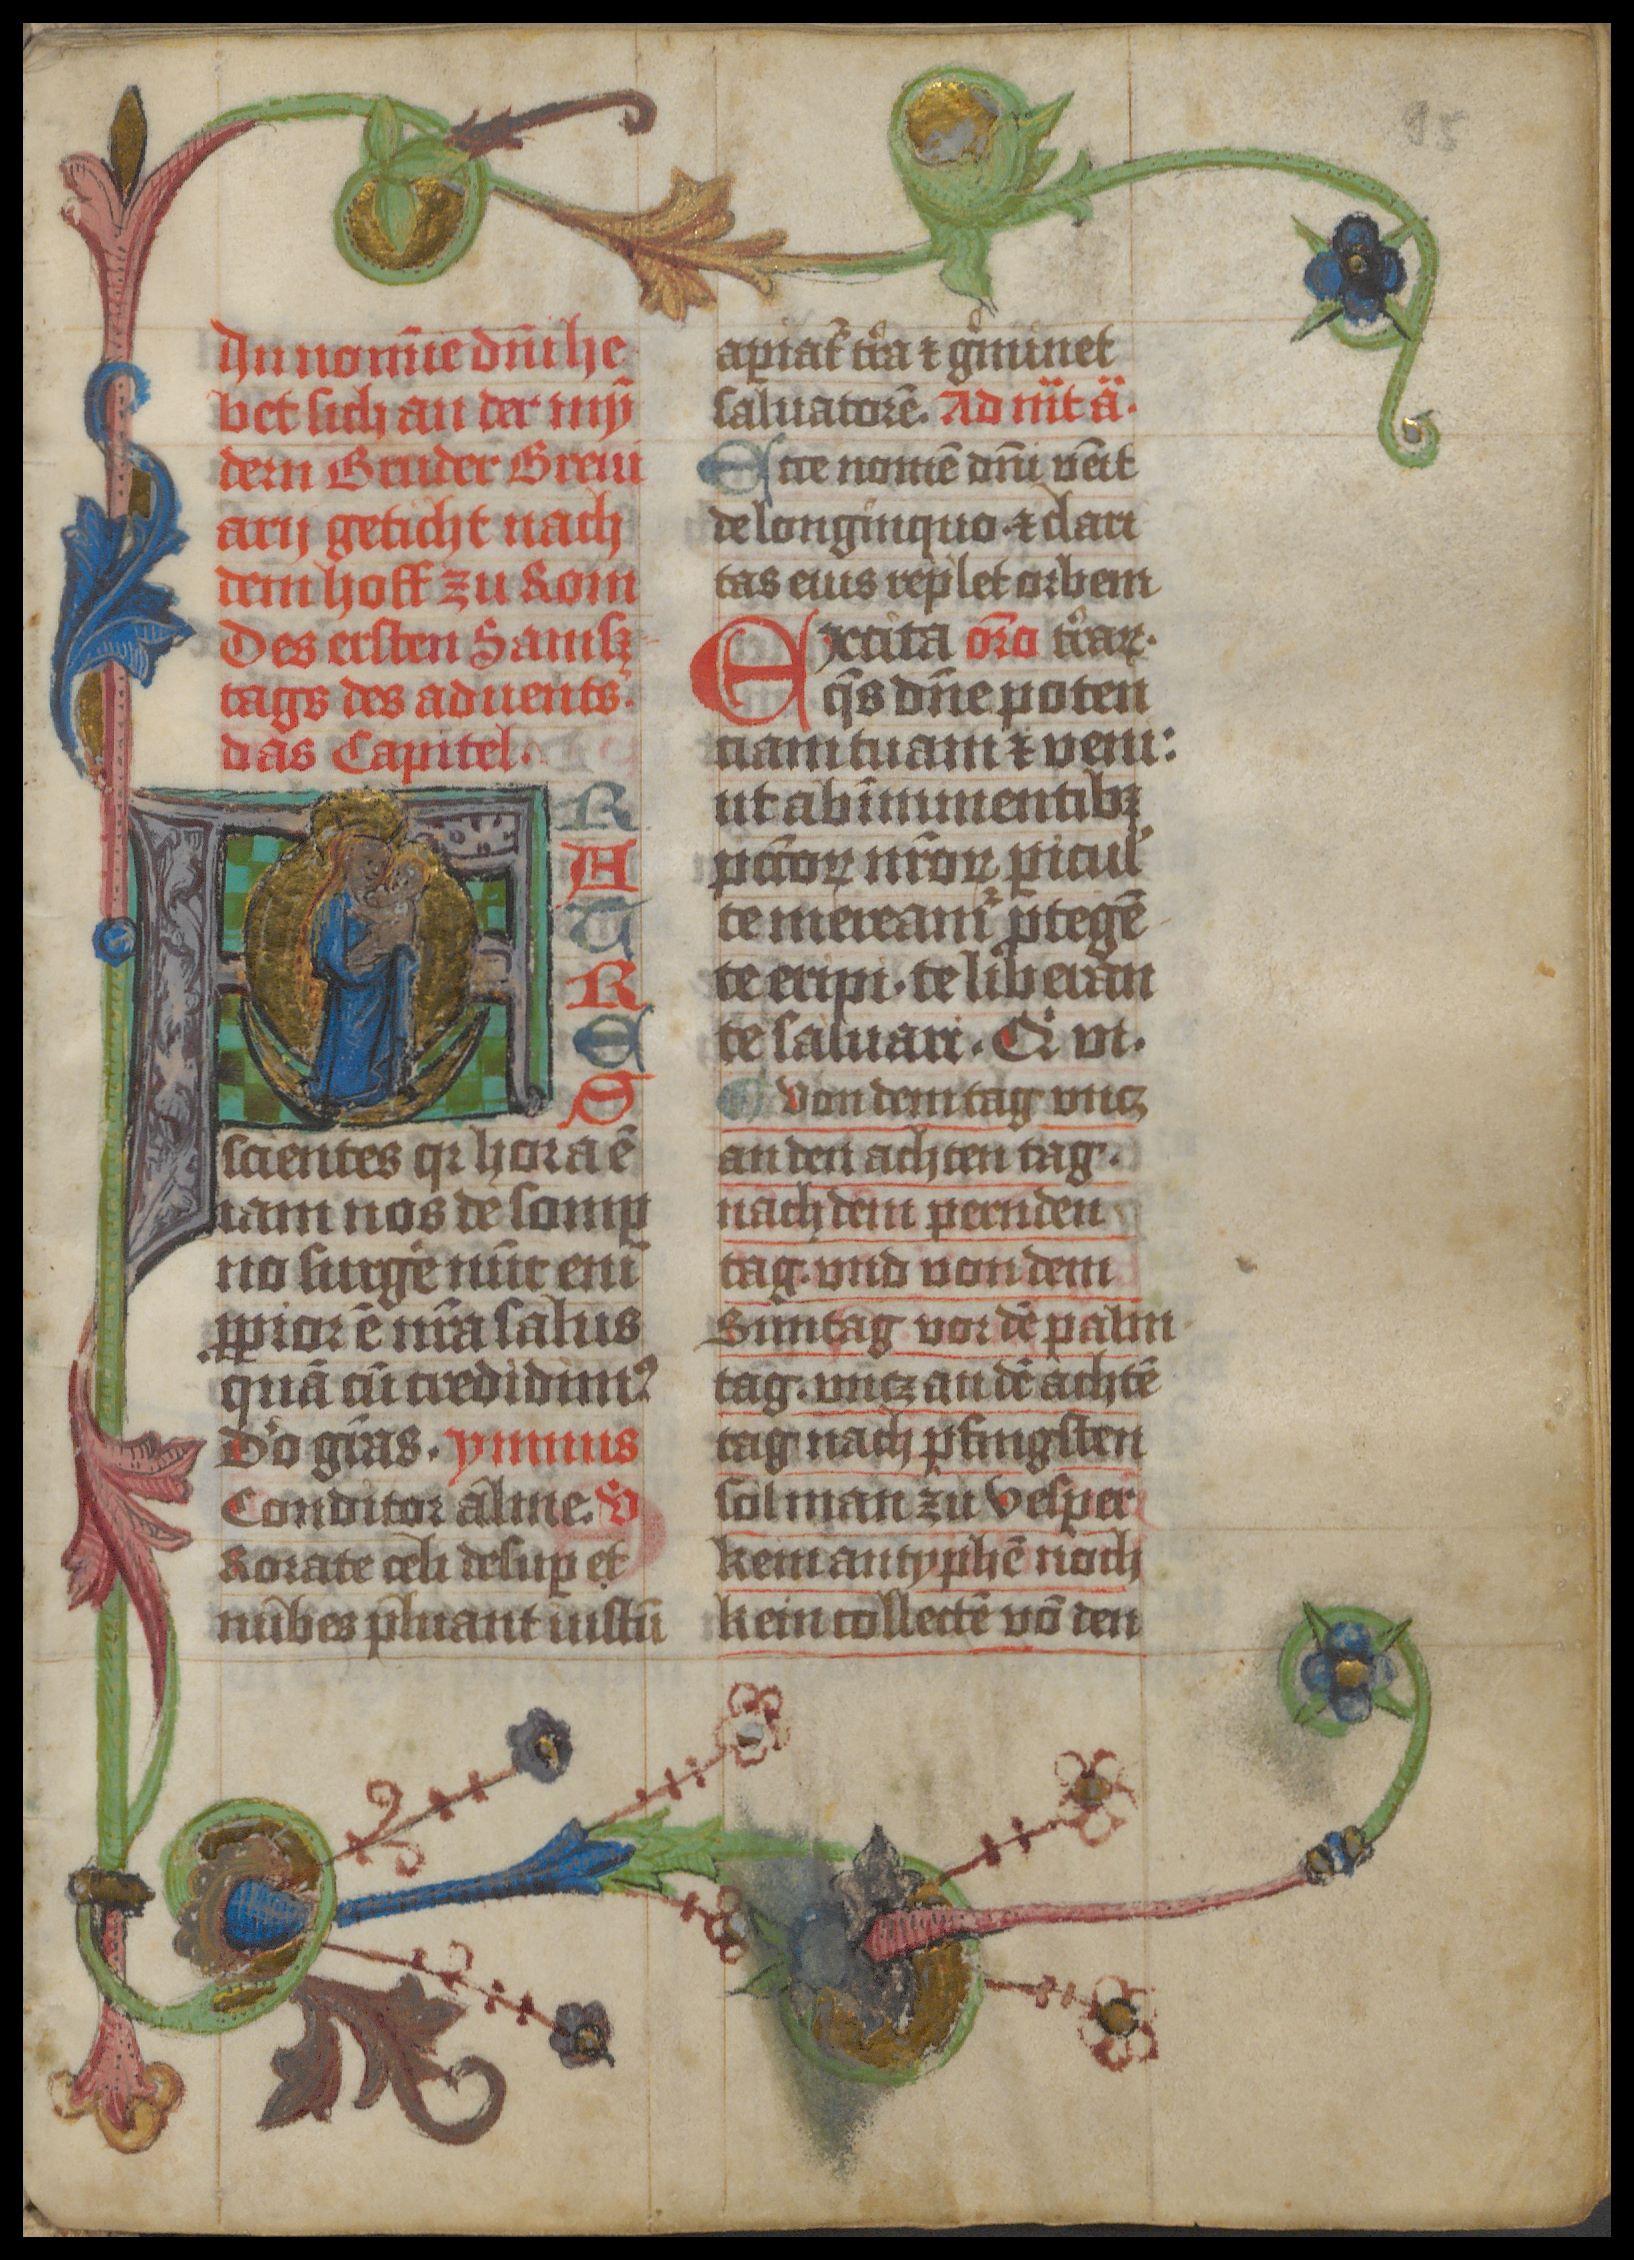 95
In nomīe dn̄i he
bet sich an der myͤ
dern Bruder Breui
arij geticht nach
dem hoff zu Rom
Des ersten Samsꜩ
tags des aduents.
das Capitel.
F
R
A
T
R
E
S
scientes qꝛ hora ē
iam nos de somp
no surgē nūc enī
ꝓpior ē nrā salus
quā cū credidimꝰ
Do gr̄as. ymnus
Conditor alme. V̄
Rorate celi desuꝑ et
nubes pluant iustū
apiat᷑ tr̄a ⁊ gͥminet
saluatorē. Ad mͣt ā.
Ecce nomē dn̄i vēit
de longinquo. ⁊ clari
tas eius replet orbem
Excita or̄o tͥaꝝ.
q̄s dn̄e poten
ciam tuam ⁊ veni:
ut ab imminentibꝫ
pctōꝝ nr̄oꝝ ꝑicul̓
te meream᷑ ꝓtegē
te eripi. te liberan
te saluari. Qͥ vi.
Von dem tag vncz
an den achten tag.
nach dem pernden
tag. vnd von dem
Sūntag vor dē palm
tag. vncz an dē achtē
tag nach pfingsten
sol man zu vesper
kein antyphē noch
kein collectē vō den